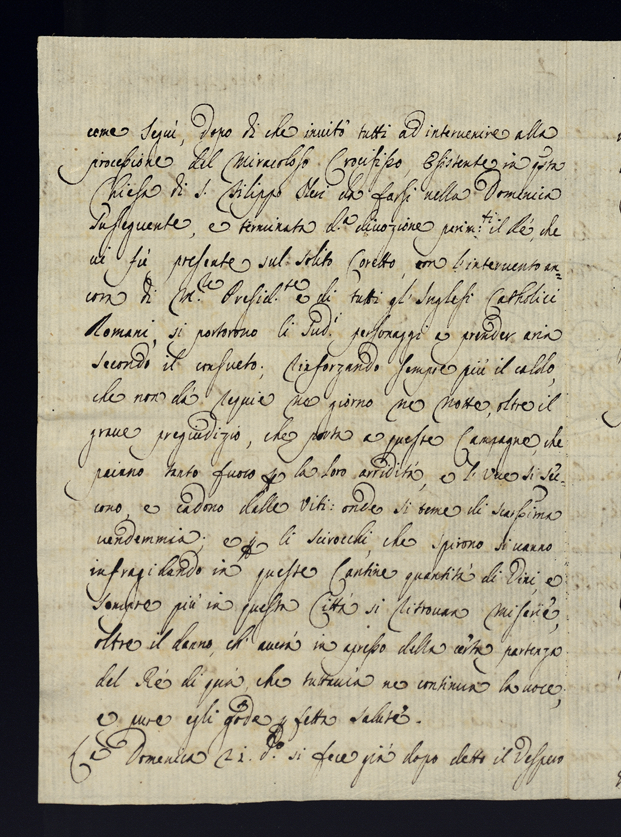 come Seguì, Dopo di che invitò tutti ad intervenire alla
processione del Miracoloso Crocifisso Esistente in qsta
Chiesa di S. Filippo Neri da farsi nella Domenica
susseguente, e terminata d.a divozione perim.ti il Ré, che
vi fù presente sul solito Coretto, con l'intervento an=
cora di M.r Presid.te e di tutti gl' Inglesi Catholici
Romani, si portorono li Sud.i personaggi a prender aria
secondo il consueto; Rinforzando sempre più il caldo,
che non dà requie ne giorno ne Notte, oltre il
grave pregiudizio, che porta a queste Campagne, che
paiano tanto fuoco p la loro arridità, e l' Uve si sec=
cono, e cadono dalle Viti: onde si teme di scarsissima
vendemmia; e p li scirocchi, che spirono si vanno
infragidando in queste Cantine quantità di Vini, e
sempre più in questa Città si Ritrovan Miserie,
oltre il danno, ch' averà in apresso della certa partenza
del Ré di quà, che tuttavia ne continua la voce;
e pure egli gode pfetta salute.
E Domenica 21. d.o si fece già dopo detto il Vespero